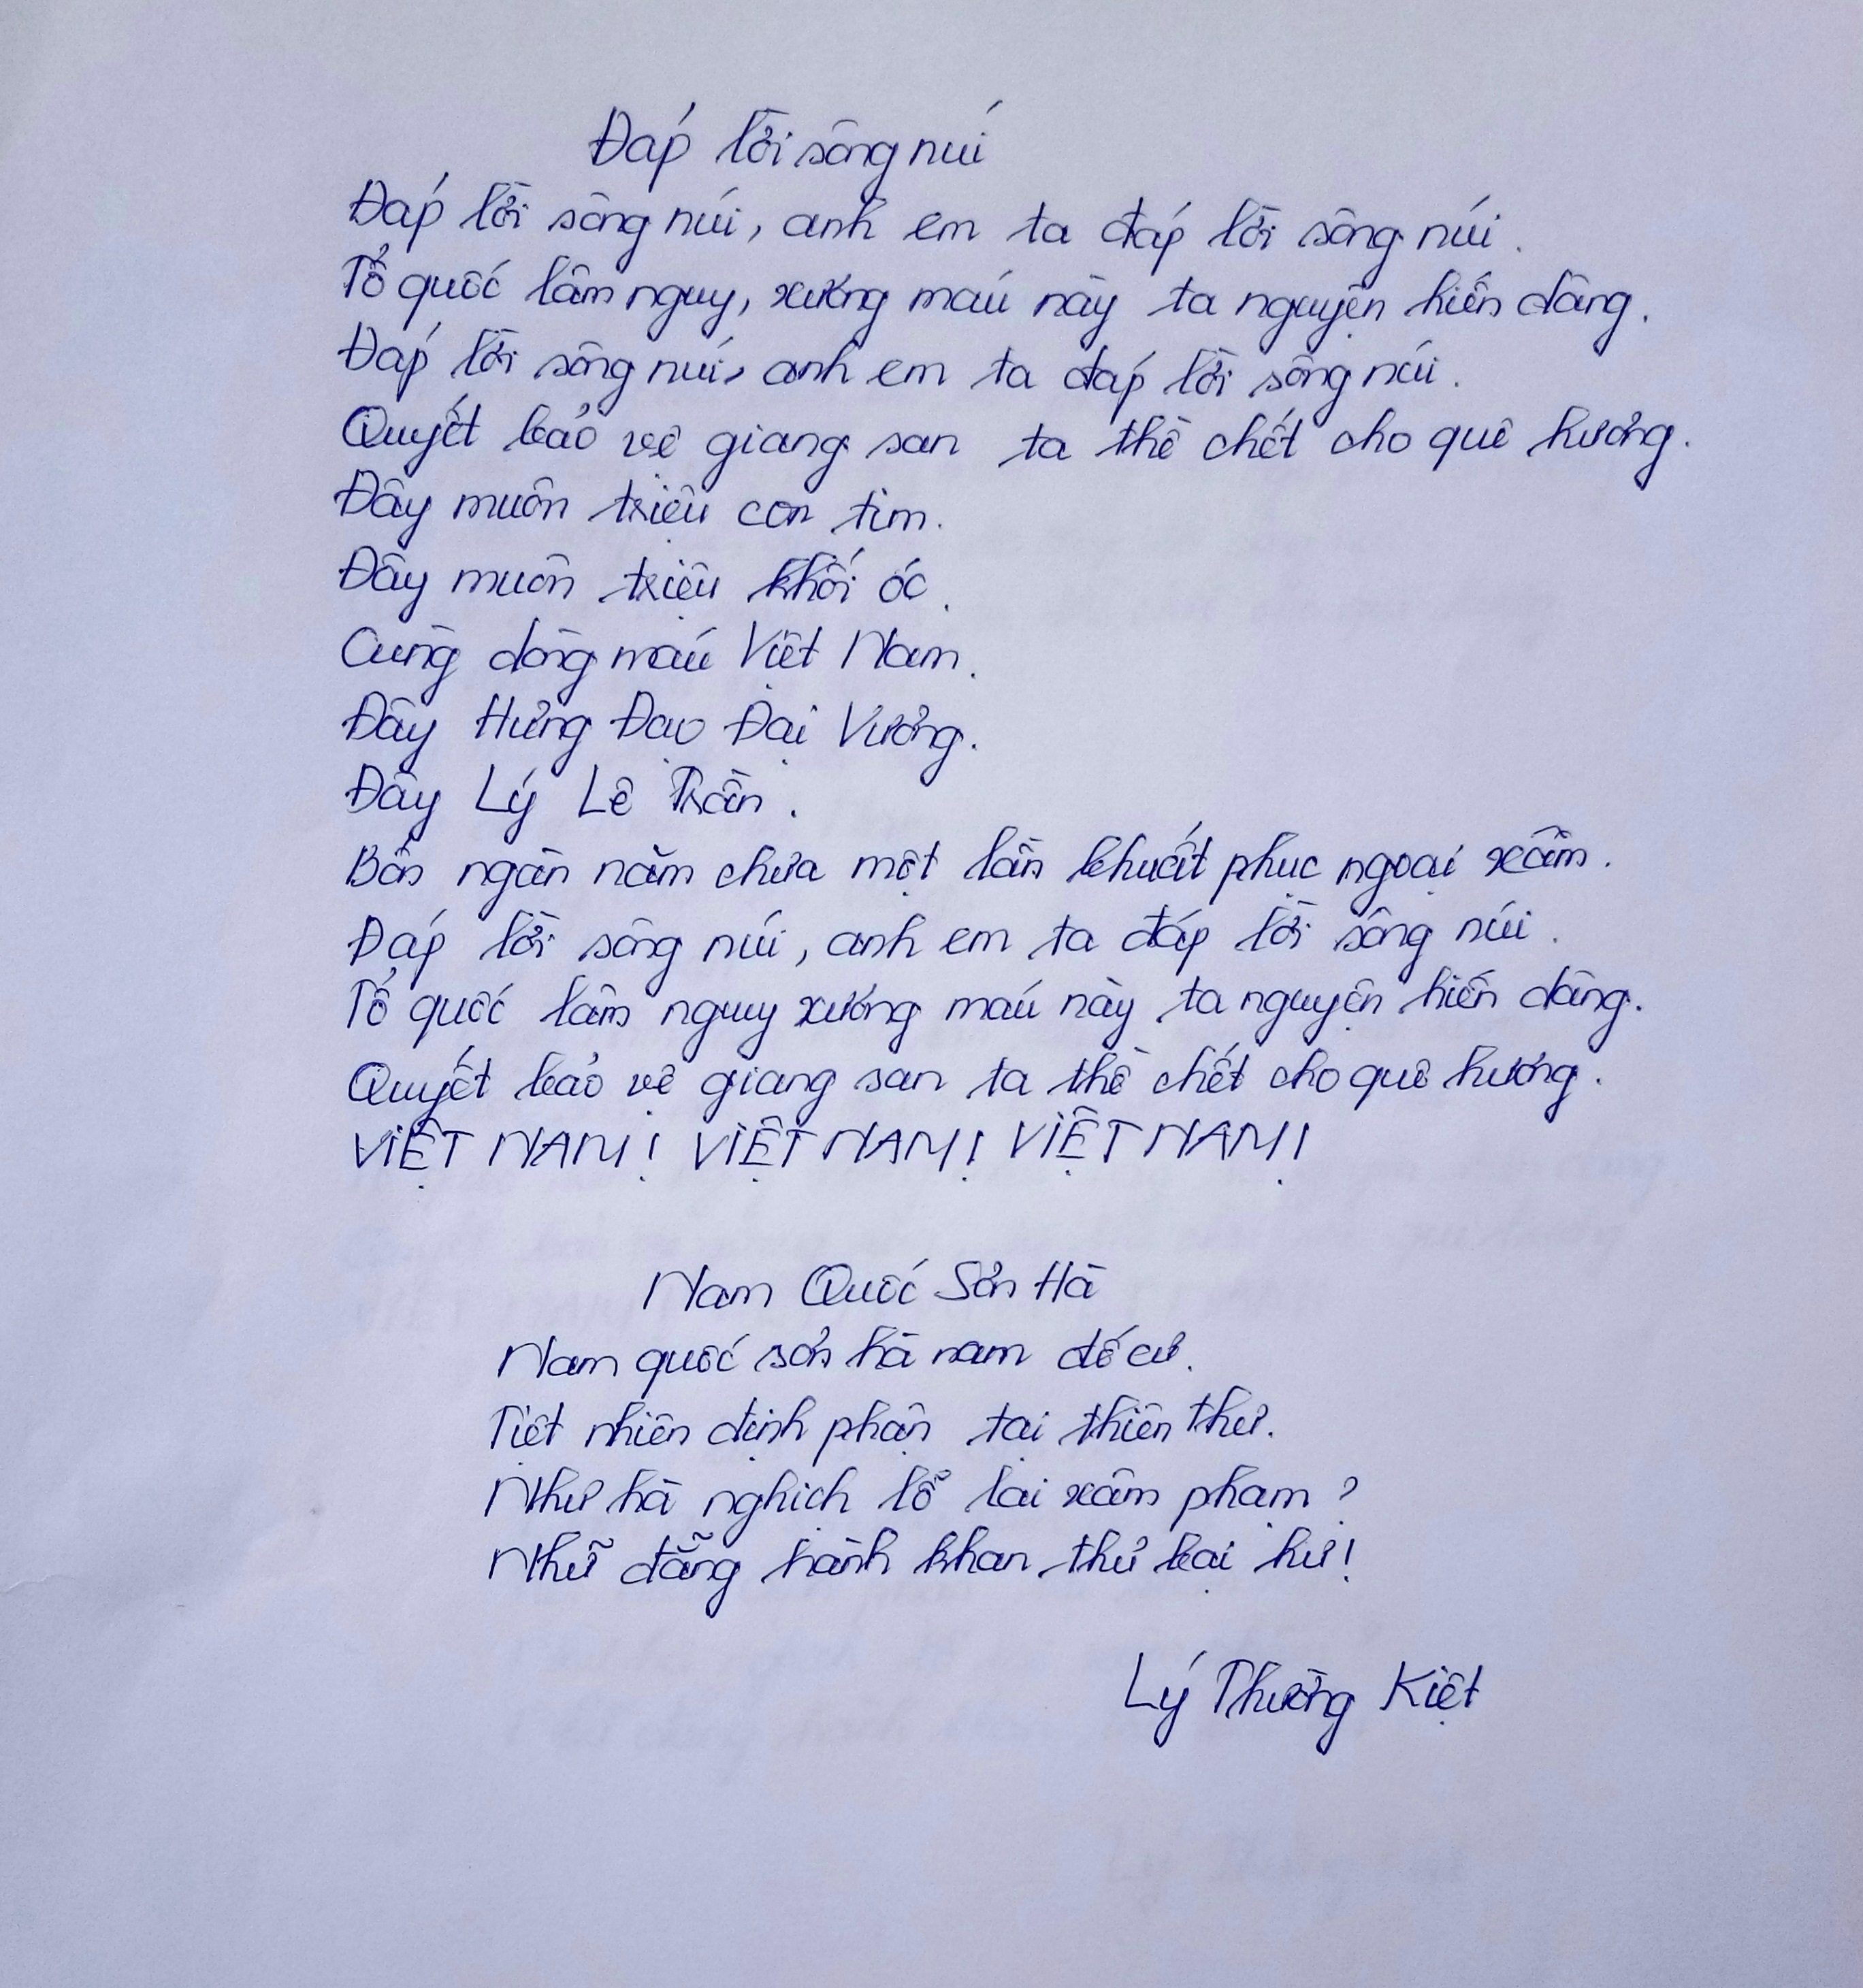 Đáp lời sông núi
Đáp lời sông núi, anh em ta đáp lời sông núi.
Tổ quốc lâm nguy, xương máu này ta nguyện hiến dâng.
Đáp lời sông núi, anh em ta đáp lời sông núi.
Quyết bảo vệ giang san ta thề chết cho quê hương.
Đây muôn triệu con tim.
Đây muôn triệu khối óc.
Cùng dòng máu Việt Nam.
Đây Hưng Đạo Đại Vương.
Đây Lý Lê Trần.
Bốn ngàn năm chưa một lần khuất phục ngoại xâm.
Đáp lời sông núi, anh em ta đáp lời sông núi.
Tổ quốc lâm nguy xương máu này ta nguyện hiến dâng.
Quyết bảo vệ giang san ta thề chết cho quê hương.
VIỆT NAM! VIỆT NAM! VIỆT NAM!
Nam Quốc Sơn Hà
Nam quốc sơn hà nam đế cư.
Tiệt nhiên định phận tại thiên thư.
Như hà nghịch lỗ lai xâm phạm?
Nhữ đẳng hành khan thủ bại hư!
Lý Thường Kiệt